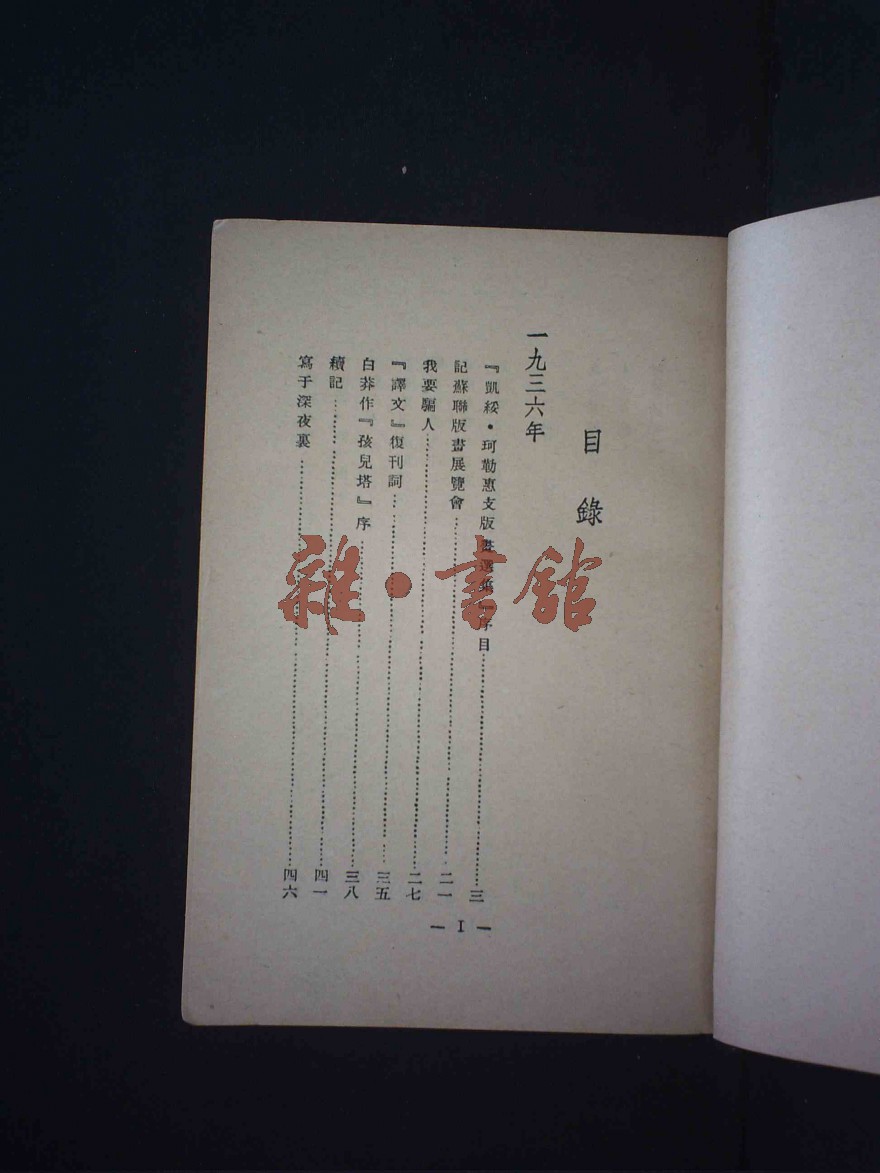 目錄
一九三六年
『凱綏·珂勒惠支版畫選集』序目……三
記蘇聯版畫展覽會……二一
我要騙人……二七
『譯文』復刊詞……三五
白莽作『孩兒塔』序……三八
續記……四一
寫于深夜裏……四六
— I —
雜·書館